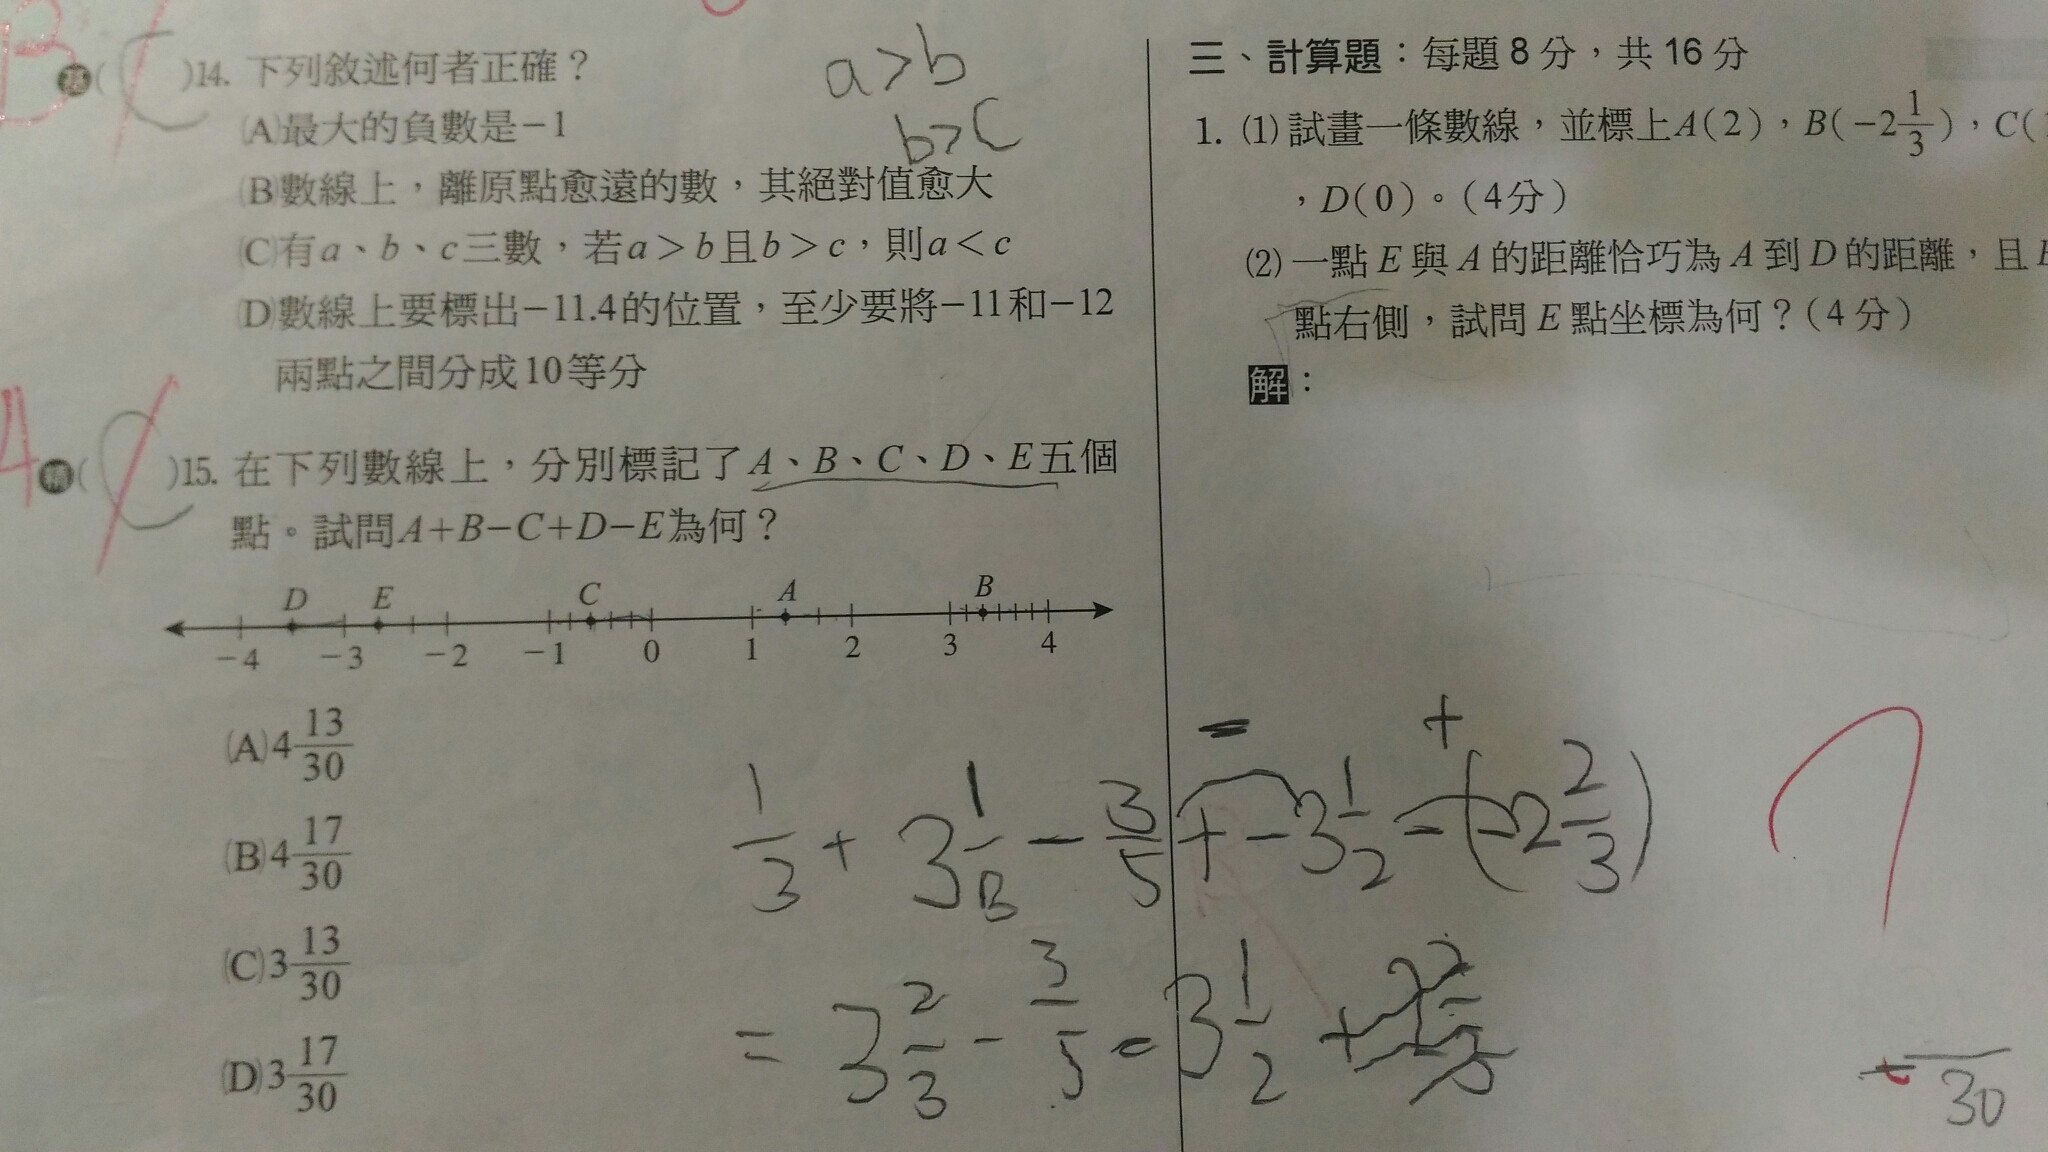 B
( C )14. 下列敘述何者正確？
(A)最大的負數是−1
(B)數線上，離原點愈遠的數，其絕對值愈大
(C)有a、b、c三數，若a>b且b>c，則a<c
(D)數線上要標出−11.4的位置，至少要將−11和−12
兩點之間分成10等分
a>b
b>c
A
精( C )15. 在下列數線上，分別標記了A、B、C、D、E五個
點。試問A+B−C+D−E為何？
D E C A B
−4 −3 −2 −1 0 1 2 3 4
(A)4 13/30
(B)4 17/30
(C)3 13/30
(D)3 17/30
三、計算題：每題8分，共16分
1. (1)試畫一條數線，並標上A(2)，B(−2 1/3)，C(
，D(0)。(4分)
(2)一點E與A的距離恰巧為A到D的距離，且
點右側，試問E點坐標為何？(4分)
解：
= +
1/3 + 3 1/3 − 3/5 + −3 1/2 − (−2 2/3)
= 3 2/3 − 3/5 − 3 1/2 +
30